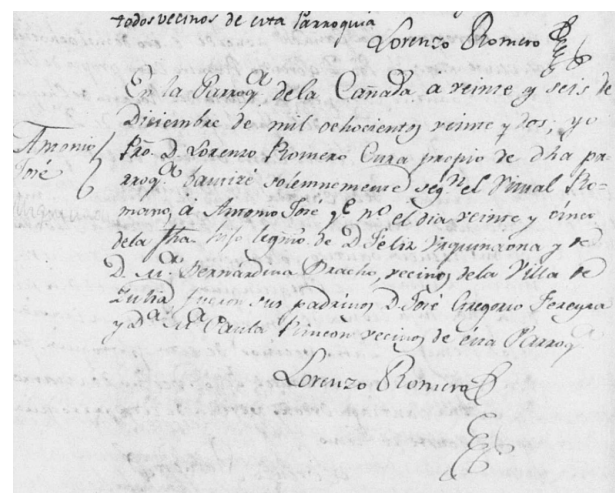 todos vecinos de esta Parroquia
Lorenzo Romero
En la Parroqª. de la Cañada à veinte y seis de
Diciembre de mil ochocientos veinte y dos; yo
Antonio José
Pbro. D. Lorenzo Romero Cura propio de dha pa-
rroqª bautizé solemnemente segn el Ritual Ro-
mano, à Antonio José qe. no. el dia veinte y cinco
de la fha hijo legmo. de D. Felix y de
D. Mª. Bernardina Bracho, vecinos de la Villa de
Zulia, fueron sus padrinos D. José Gregorio Pereyra
y Dª. Mª. Paula Rincon vecinos de esta Parroqª.
Lorenzo Romero